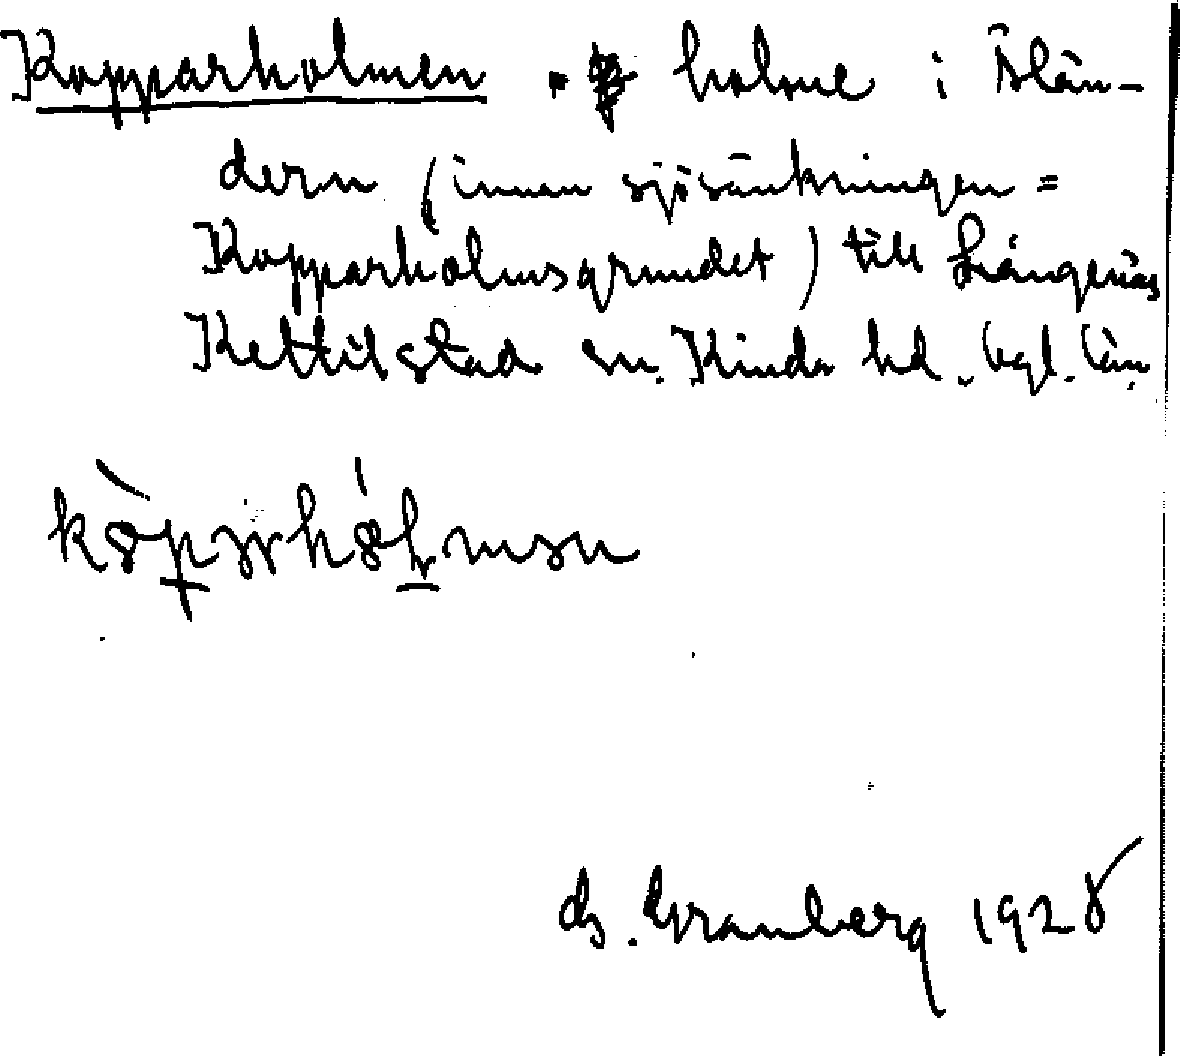 Kopparholmen . holme i Ölän-
dern (innan sjösänkningen =
Kopparholmsgrundet) till Långenäs
Kettilstad sn. Kinda hd. Ögl. län
G. Granberg 1928